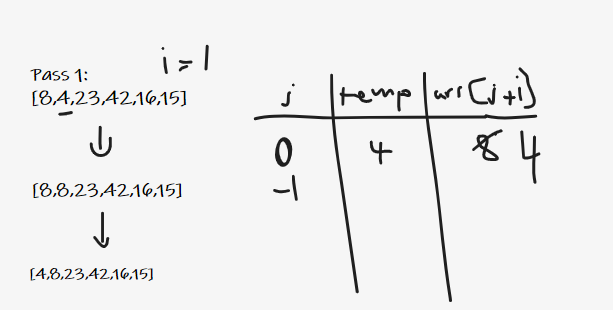 i = 1
Pass 1:
[8,4,23,42,16,15]
[8,8,23,42,16,15]
[4,8,23,42,16,15]
j temp arr[j+i]
0 4 8 4
-1